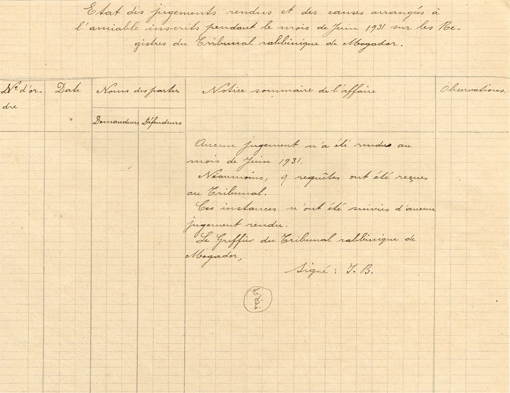 Etat des jugements rendus et des causes arrangés à
l'amiable inscrits pendant le mois de Juin 1931 sur les Re-
gistres du Tribunal rabbinique de Mogador.
No d'or-
dre
Date
Noms des parties
Demandeurs Défendeurs
Notice sommaire de l'affaire
Observations
Aucun jugement n'a été rendu au
mois de Juin 1931.
Néanmoins, 9 requêtes ont été reçues
au Tribunal.
Ces instances n'ont été suivies d'aucun
jugement rendu.
Le Greffier du Tribunal rabbinique de
Mogador,
Signé: I. B.